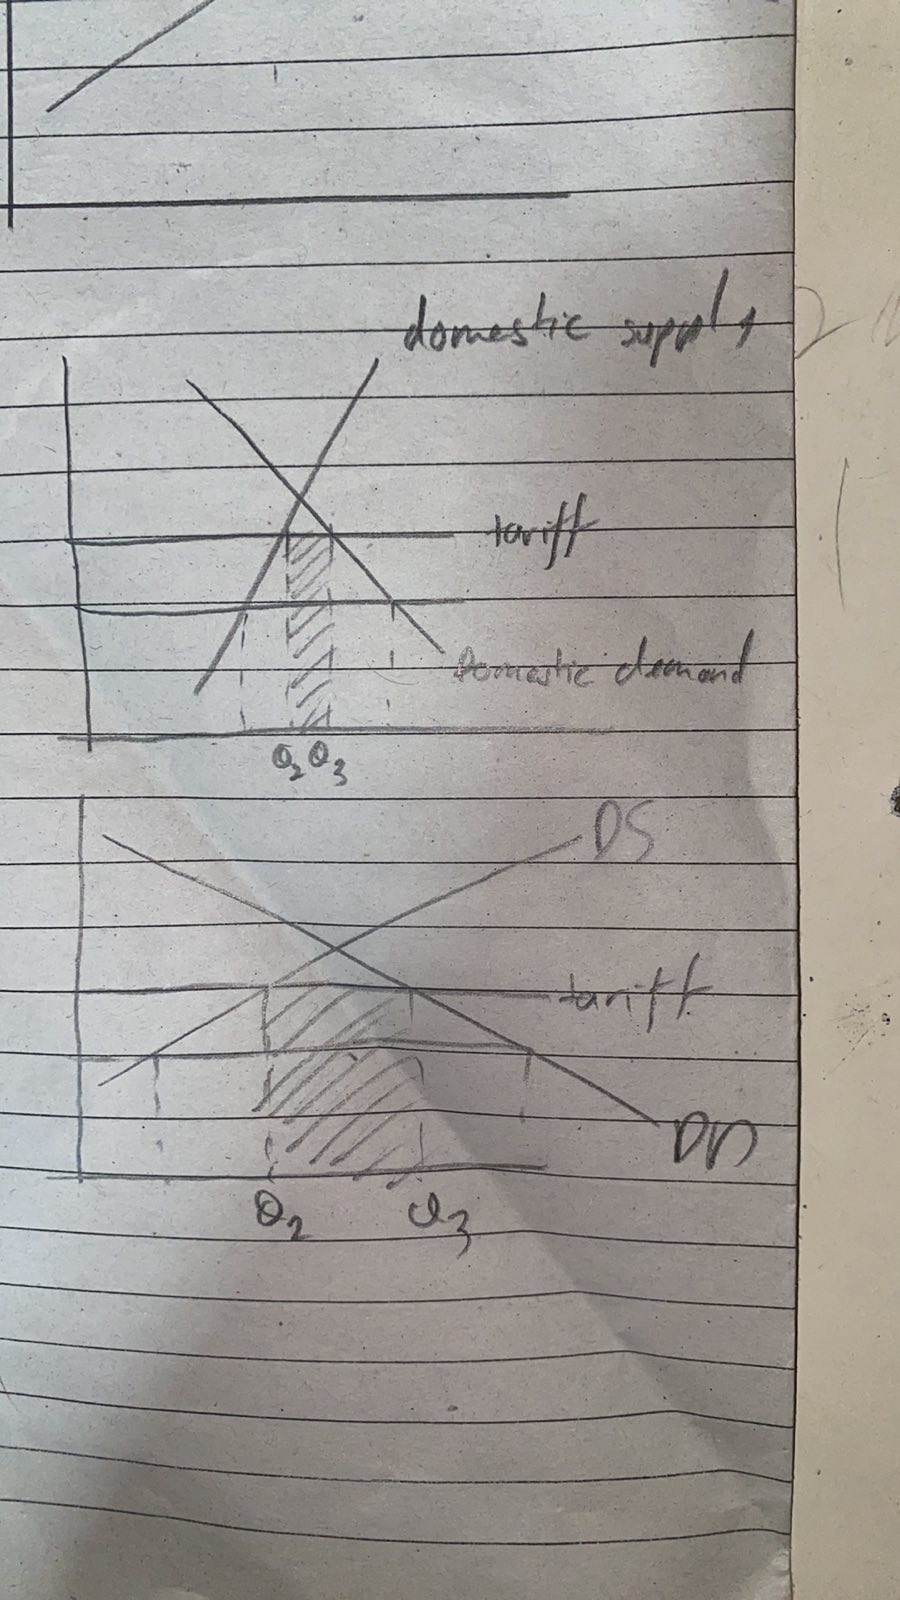 domestic supply
tariff
Domestic demand
Q2 Q3
DS
tariff
DD
Q2 Q3